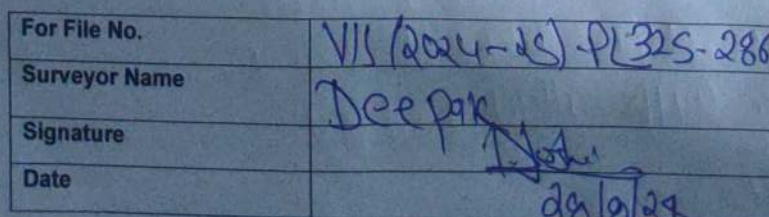 For File No. VIS (2024-25)-PL325-286
Surveyor Name Deepak
Signature
Date